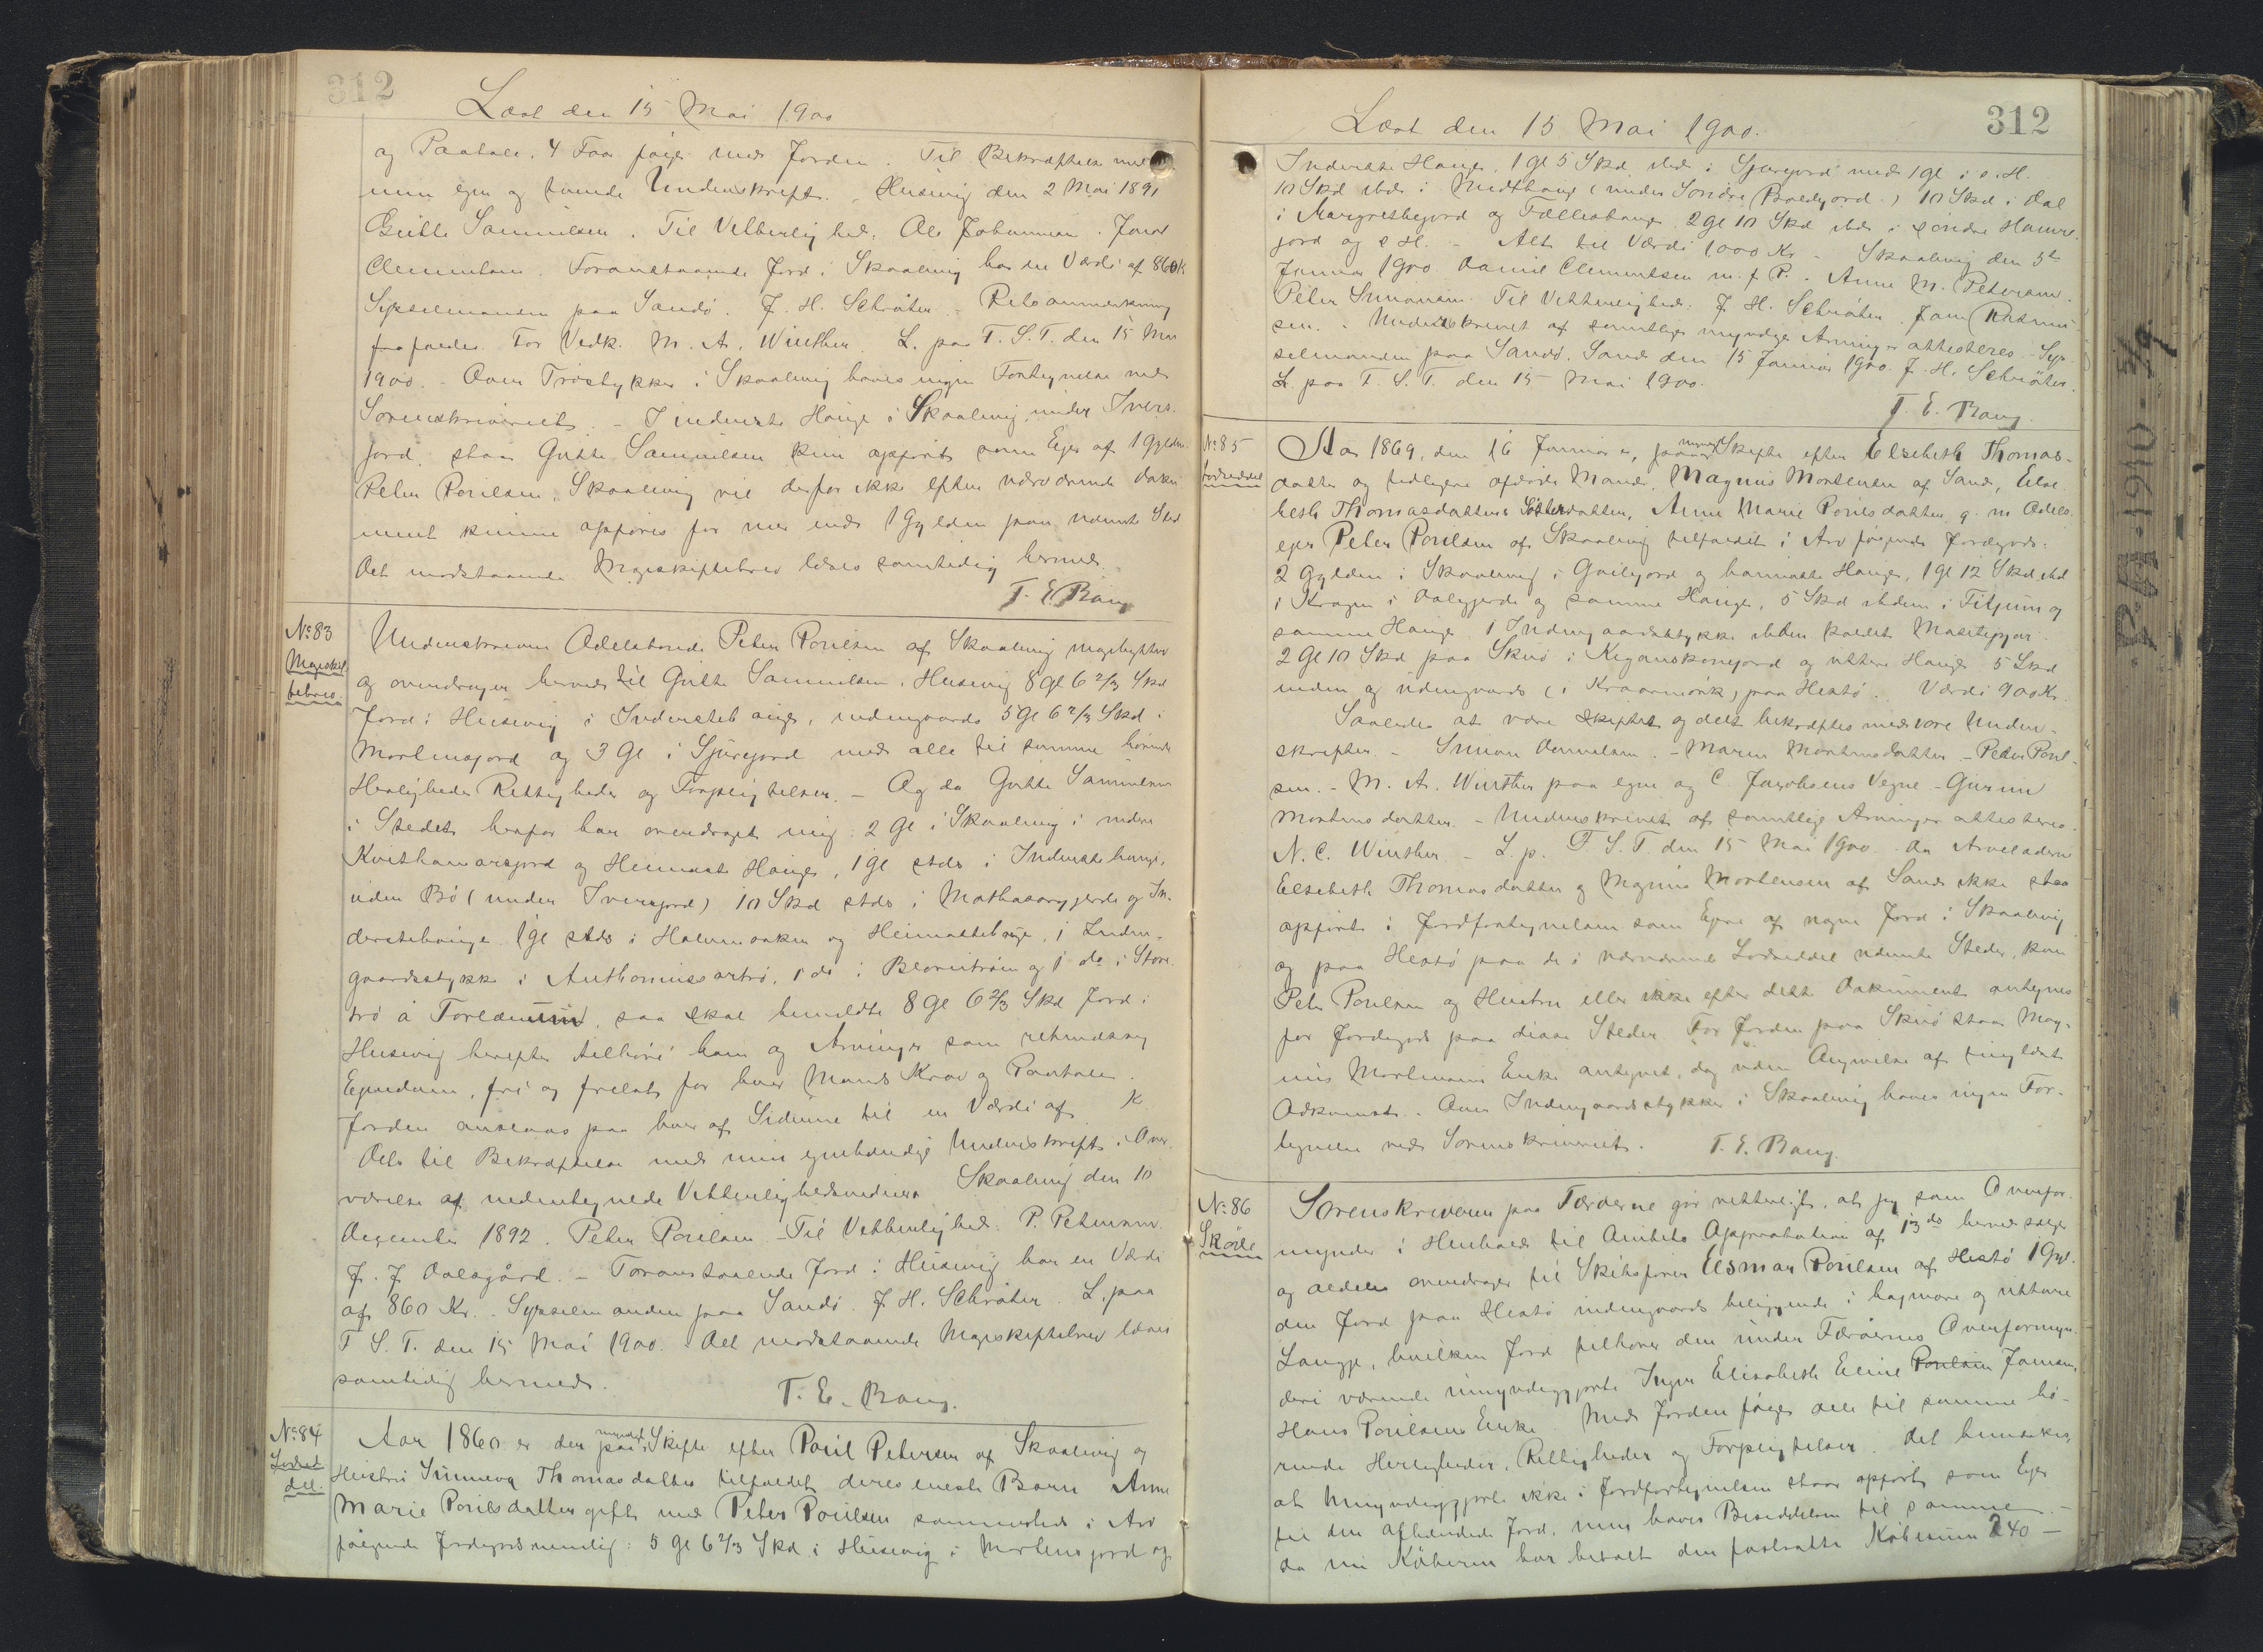 312
Læst den 15 Mai 1900
og Paatale. 4 Faar følger med Jorden. Til Bekræftelse med
min egen og tvende Underskrift. Husevig den 2 Mai 1891
Gutte Samuelsen. Til Vitterlighed. Ole Johannesen. Jonas
Clementsen. Foranstaaende Jord i Skaalevig har en Værdi af 860 K
Sysselmanden paa Sandø. J. H. Schrøter. - Retsanmærkning
frafaldes. For Vedk. M. A. Winther. L. paa F. S. T. den 15 Mai
1900. - Over Trøstykker i Skaalevig haves ingen Fortegnelse ved
Sorenskriveriet. - I inderste Hauge i Skaalevig under Ivers-
jord, staar Gutte Samuelsen kun opført som Ejer af 1 Gylden
Peter Poulsen, Skaalevig vil derfor ikke efter nærværende Doku-
ment kunne opføres for mer end 1 Gylden paa nævnte Sted
Det modstaaende Mageskiftebrev læses samtidig hermed.
T. E. Bang
No 83
Mageskif
tebrev.
Underskrevne Odelsbonde Peter Poulsen af Skaalevig magebytter
og overdrager herved til Gutte Samuelsen, Husevig 8 Gl 6 2/3 Skd
Jord i Husevig i Inderstehauge, indengaards 5 Gl 6 2/3 Skd i
Mortensjord og 3 Gl i Sjurejord med alle til samme hørende
Herligheder Rettigheder og Forpligtelser. - Og da Gutte Samuelsen
i Stedet herfor har overdraget mig: 2 Gl i Skaalevig i nedre
Kvithamarsjord og Heimasta Hauge, 1 Gl stds i Inderstehauge,
uden Bø (under Iversjord) 10 Skd stds i Mathasarygjerde og In-
derstehauge 1 Gl stds i Halvmaaken og Heimastehauge, 1 Inden-
gaardsstykke i Anthoniussartrø, 1 do i Blomitrøin og 1 do i Store
trø á Forlænum, saa skal bemeldte 8 Gl 6 2/3 Skd Jord i
Husevig herefter tilhøre ham og Arvinger som retmæssig
Ejendom, fri og frelst for hver Mands Krav og Paatale.
Jorden ansees paa hver af Siderne til en Værdi af K
Dets til Bekræftelse med min egenhændige Underskrift i Over-
værelse af nedentegnede Vitterlighedsvidner. Skaalevig den 10
December 1892. Peter Poulsen - Til Vitterlighed: P. Petersen.
J. J. Dalsgård. - Foranstaaende Jord i Husevig har en Værdi
af 860 Kr. - Sysselmanden paa Sandø. J. H. Schrøter. L. paa
F S. T. den 15 Mai 1900. - Det modstaaende Mageskiftebrev læses
samtidig hermed.
T. E. Bang.
No 84
Lodsed
del.
Aar 1860 er der paa mynd. Skifte efter Poul Petersen af Skaalevig og
Hustru Sunneva Thomasdatter tilfaldet deres eneste Barn Anne
Marie Poulsdatter gift med Peter Poulsen sammesteds i Arv
følgende Jordegods nemlig: 5 Gl 6 2/3 Skd i Husevig i Mortensjord og
Læst den 15 Mai 1900.
312
Inderste Hauge, 1 Gl 5 Skd ibd. i Sjurejord med 1 Gl i s. H.
10 Skd ibd. i Midthauge (under Søndre Boelsjord) 10 Skd i Dal
i Margrethejord og Fælleshauge 2 Gl 10 Skd ibd. i søndre Hamre-
jord og s H. - Alt til Værdi 1000 Kr. - Skaalevig den 5te
Januar 1900. Daniel Clementsen m. f P. - Anne M. Petersen.
Peter Simonsen. Til Vitterlighed: J. H. Schrøter. Joen Rasmus-
sen. - Underskrevet af samtlige myndige Arvinger attesteres. - Sys-
selmanden paa Sandø. Sand den 15 Januar 1900. J. H. Schrøter.
L. paa F. S. T. den 15 Mai 1900.
T. E. Bang.
No 85
Lodseddel
Aar 1869, den 16 Januar er, paa mynd. Skifte efter Elsebeth Thomas-
datter og tidligere afdøde Mand, Magnus Mortensen af Sand, Else-
beth Thomasdatters Søsterdatter, Anne Marie Poulsdatter g. m Odels-
ejer Peter Poulsen af Skaalevig tilfaldet i Arv følgende Jordegods:
2 Gylden i Skaalevig i Gailijord og hannaste Hauge, 1 Gl 12 Skd ibd
i Kragen i Dalegjerde og samme Hauge, 5 Skd ibdem i Fitjum og
samme Hauge 1 Indengaardsstykke ibdem kaldet Masetegjar.
2 Gl 10 Skd paa Skuø i Keganskonejord og uttere Hauge 5 Skd
inden og udengaards (i Kraarmørk) paa Hestø. Værdi 900 Kr.
Saaledes at være skiftet og delt bekræftes med vore Under-
skrifter. - Simon Danielsen. - Maren Mortensdatter - Peder Poul-
sen. - M. A. Winther paa egne og C. Jacobsens Vegne - Gurun
Mortensdatter. - Underskrevet af samtlige Arvinger attesteres.
N. C. Winther. - L. p. F S. T. den 15 Mai 1900. - Da Arveladerne
Elsebeth Thomasdatter og Magnus Mortensen af Sand ikke staa
opført i Jordfortegnelsen som Ejere af nogen Jord i Skaalevig
og paa Hestø paa de i nærværende Lodseddel nævnte Steder, kan
Peter Poulsen og Hustru eller ikke efter dette Dokument antegnes
for Jordegods paa disse Steder. For Jorden paa Skuø staar Mag-
nus Mortensens Enke antegnet, dog uden Angivelse af tinglæst
Adkomst. - Over Indengaardsstykker i Skaalevig haves ingen For-
tegnelse ved Sorenskriveriet. T. E. Bang.
No 86
Skøde
Sorenskriveren paa Færøerne gør vitterligt, at jeg som Overfor-
mynder i Henhold til Amtets Approbation af 13 ds herved sælger
og aldeles overdrager til Skibsfører Elsmar Poulsen af Hestø 1 Gyl-
den Jord paa Hestø indengaards beliggende i hagmore og uttare
Laugje, hvilken Jord tilhører den under Færøernes Overformyn-
deri værende umyndiggjorte Inger Elisabeth Eline Poulsen Joensen,
Hans Poulsens Enke. Med Jorden følger alle til samme hø-
rende Herligheder, Rettigheder og Forpligtelser. Det bemærkes,
at Umyndiggjorte ikke i Jordfortegnelsen staar opført som Ejer
til den afhændede Jord, men haves Besiddelsen til samme -
da nu Køberen har betalt den fastsatte Købesum 240 -